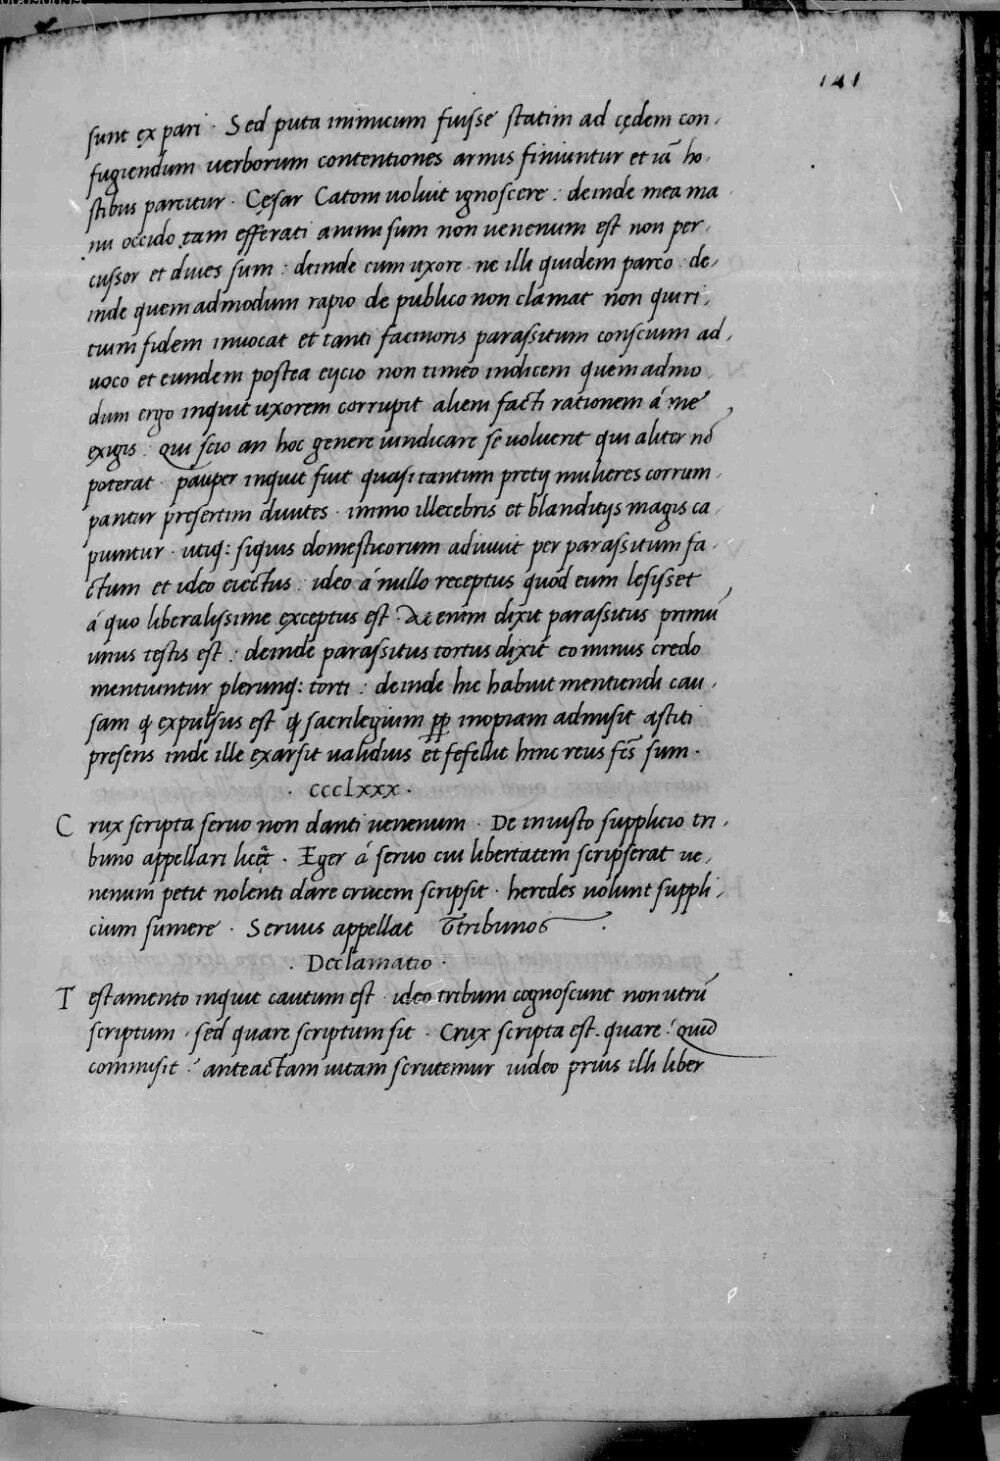 141
sunt ex pari · Sed puta inimicum fuisse statim ad cędem con,
fugiendum uerborum contentiones armis finiuntur et iā ho,
stibus parcitur · Cęsar Catoni uoluit ignoscere : deinde mea ma
nu occido tam efferati animi sum non uenenum est non per,
cussor et diues sum : deinde cum uxore ne illi quidem parco : de,
inde quemadmodum rapio de publico non clamat non quiri,
tium fidem inuocat et tanti facinoris parassitum conscium ad,
uoco et eundem postea eijcio non timeo indicem quemadmo,
dum ergo inquit uxorem corrupit alieni facti rationem á me
exigis : qui scio an hoc genere uindicare se uoluerit qui aliter nō
poterat · pauper inquit fuit quasi tantum pretij mulieres corrum,
pantur presertim diuites · immo illecebris et blanditijs magis ca,
piuntur · utiq: siquis domesticorum adiuuit per parassitum fa,
ctum et ideo eiectus : ideo á nullo receptus quód eum lesisset
á quo liberalissime exceptus est · At enim dixit parassitus primū
unus testis est : deinde parassitus tortus dixit eo minus credo
mentiuntur plerunq: torti : deinde hic habuit mentiendi cau,
sam ꝙ expulsus est ꝙ sacrilegium ꝓꝑ inopiam admisit astiti
presens inde ille exarsit ualidius et fefellit hinc reus fc̄s sum ·
· ccclxxx ·
Crux scripta seruo non danti uenenum · De iniusto supplicio tri,
buno appellari licęt · Eger á seruo cui libertatem scripserat ue,
nenum petit nolenti dare crucem scripsit · heredes uolunt suppli,
cium sumere · Seruus appellat Tribunos ·
· Declamatio ·
Testamento inquit cautum est · ideo tribuni cognoscunt non utrū
scriptum · sed quare scriptum sit · Crux scripta est · quare ? quid
commisit ? anteactam uitam scrutemur uideo prius illi liber